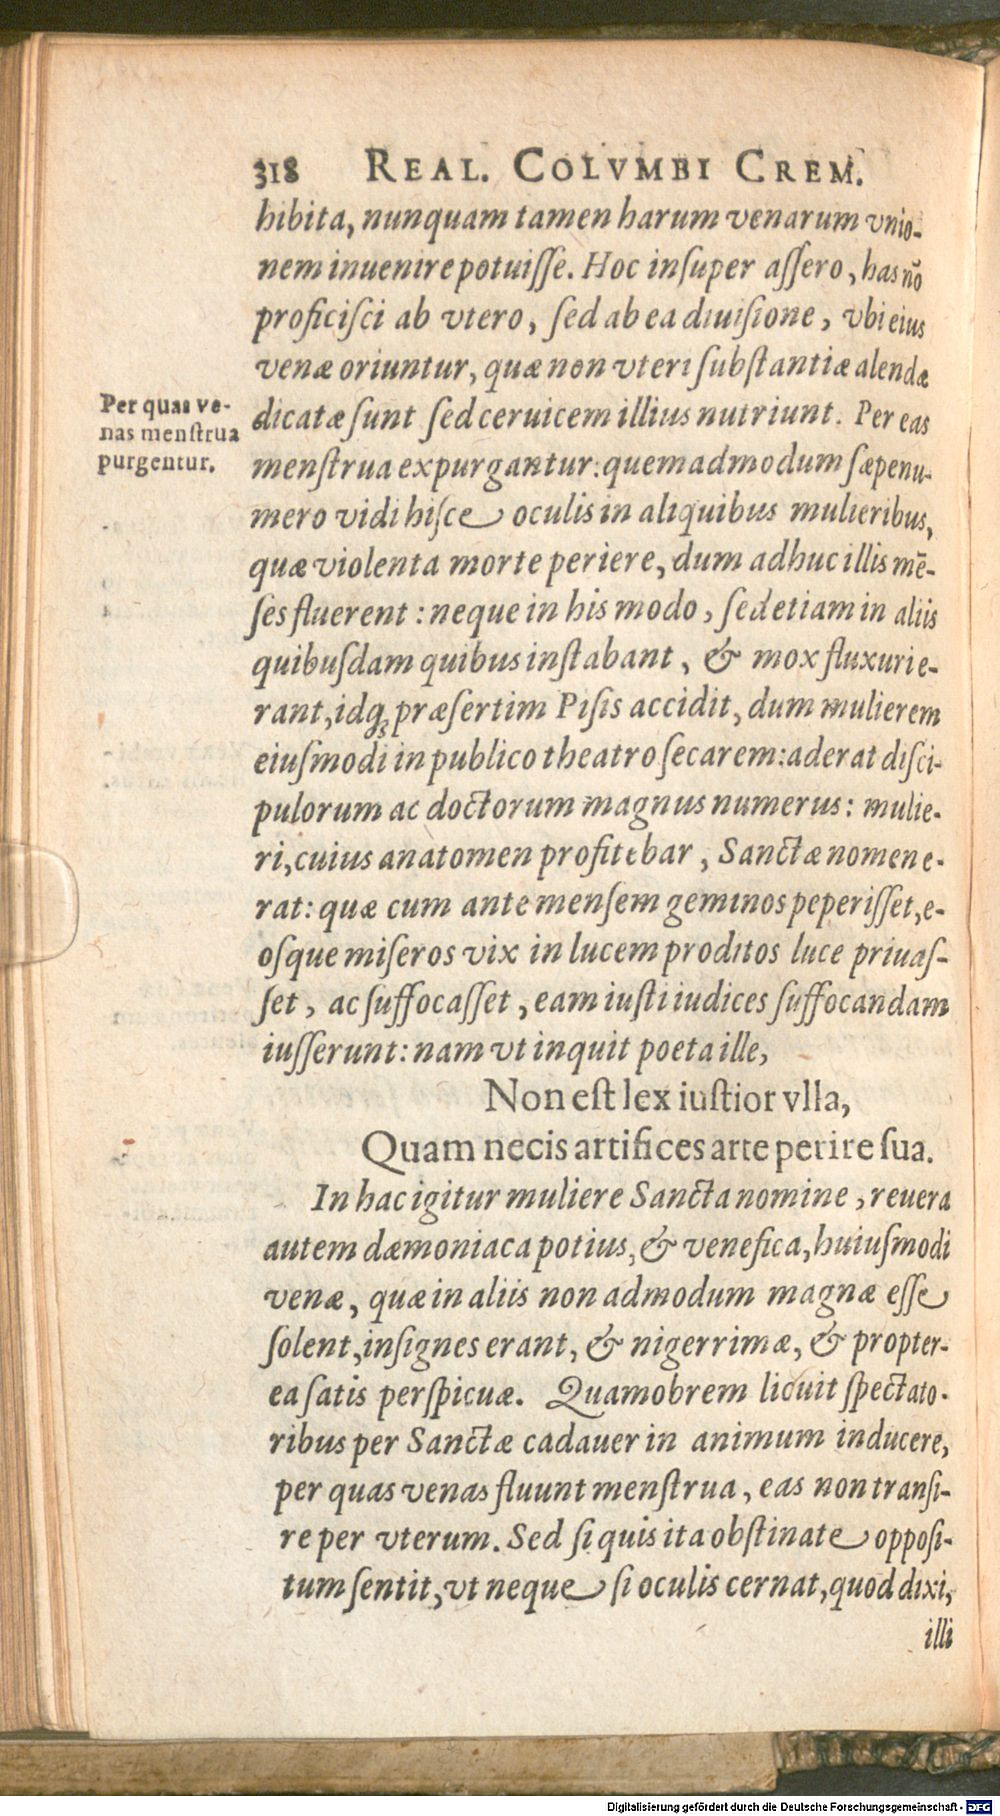 318 REAL. COLVMBI CREM.
hibita, nunquam tamen harum venarum vnio-
nem inuenire potuiſſe. Hoc inſuper aſſero, has nō
proficiſci ab vtero, ſed ab ea diuiſione, vbi eius
venæ oriuntur, quæ non vteri ſubſtantiæ alendæ
dicatæ ſunt ſed ceruicem illius nutriunt. Per eas
Per quas ve-
nas menſtrua
purgentur.
menſtrua expurgantur: quemadmodum ſæpenu-
mero vidi hiſce oculis in aliquibus mulieribus,
quæ violenta morte periere, dum adhuc illis mē-
ſes fluerent: neque in his modo, ſed etiam in aliis
quibuſdam quibus inſtabant, & mox fluxuri e-
rant, idq́; præſertim Piſis accidit, dum mulierem
eiuſmodi in publico theatro ſecarem: aderat diſci-
pulorum ac doctorum magnus numerus: mulie-
ri, cuius anatomen profitebar, Sanctæ nomen e-
rat: quæ cum ante menſem geminos peperiſſet, e-
oſque miſeros vix in lucem proditos luce priuaſ-
ſet, ac ſuffocaſſet, eam iuſti iudices ſuffocandam
iuſſerunt: nam vt inquit poeta ille,
Non eſt lex iuſtior vlla,
Quam necis artifices arte perire ſua.
In hac igitur muliere Sancta nomine, reuera
autem dæmoniaca potius, & venefica, huiuſmodi
venæ, quæ in aliis non admodum magnæ eſſe
ſolent, inſignes erant, & nigerrimæ, & propter-
ea ſatis perſpicuæ. Quamobrem licuit ſpectato-
ribus per Sanctæ cadauer in animum inducere,
per quas venas fluunt menſtrua, eas non tranſi-
re per vterum. Sed ſi quis ita obſtinate oppoſi-
tum ſentit, vt neque ſi oculis cernat, quod dixi,
illi
Digitalisierung gefördert durch die Deutsche Forschungsgemeinschaft - DFG